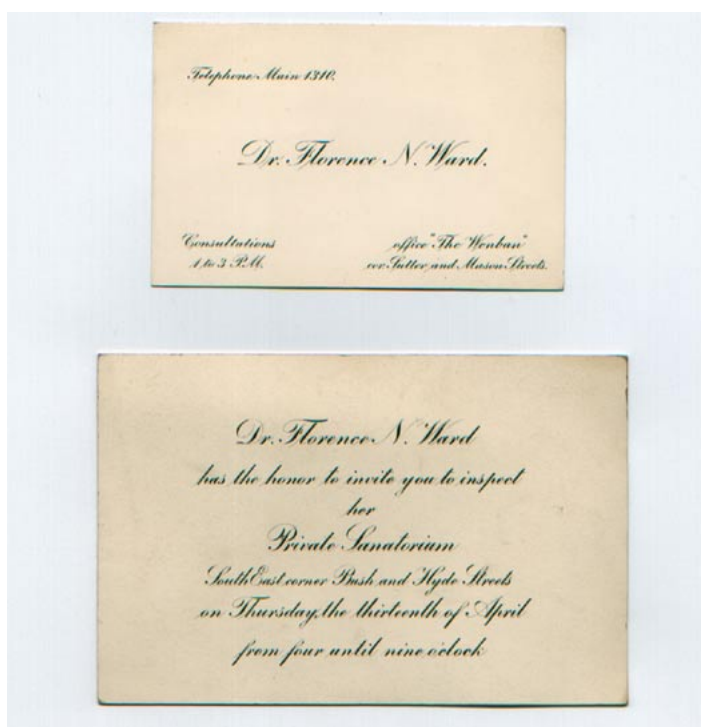 Telephone Main 1310.
Dr. Florence N. Ward.
Consultations
1 to 3 P.M.
office "The Wenban"
cor Sutter and Mason Streets.
Dr. Florence N. Ward
has the honor to invite you to inspect
her
Private Sanatorium
South East corner Bush and Hyde Streets
on Thursday, the thirteenth of April
from four until nine o'clock